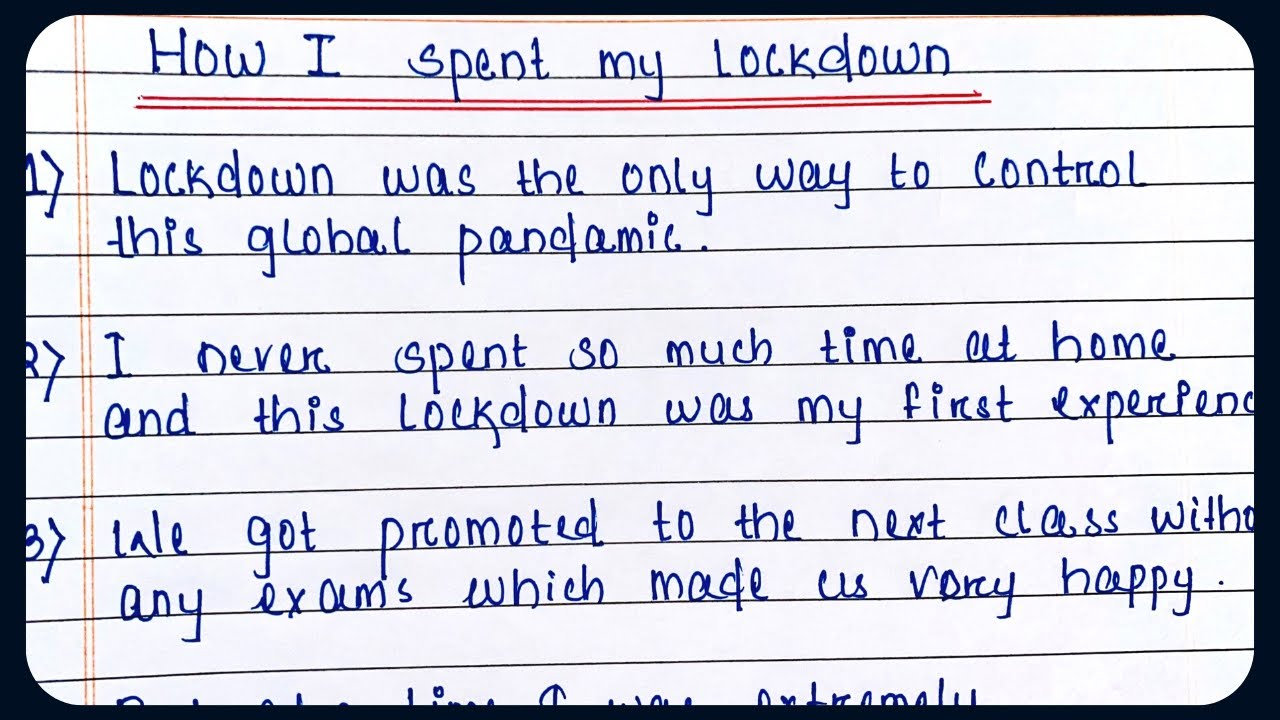 How I spent my Lockdown
1) Lockdown was the only way to control
this global pandamic.
2) I never spent so much time at home
and this Lockdown was my first experienc
3) We got promoted to the next class witho
any exams which made us very happy.
time I was extremely